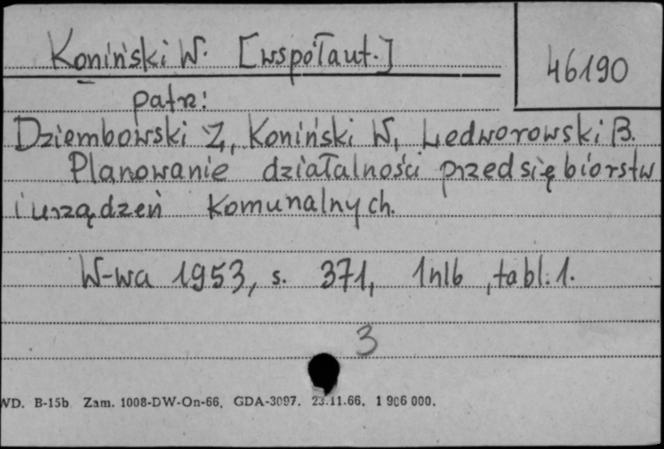 Koniński W. [wspołaut.]
46190
patrz:
Dziembowski Z, Koniński W, Ledworowski B.
Planowanie działalności przedsiębiorstw
i urządzeń komunalnych.
W-wa 1953, s. 371, 1nlb, tabl. 1.
3
WD. B-15b Zam. 1008-DW-On-66, GDA-3097. 23.11.66. 1 906 000.